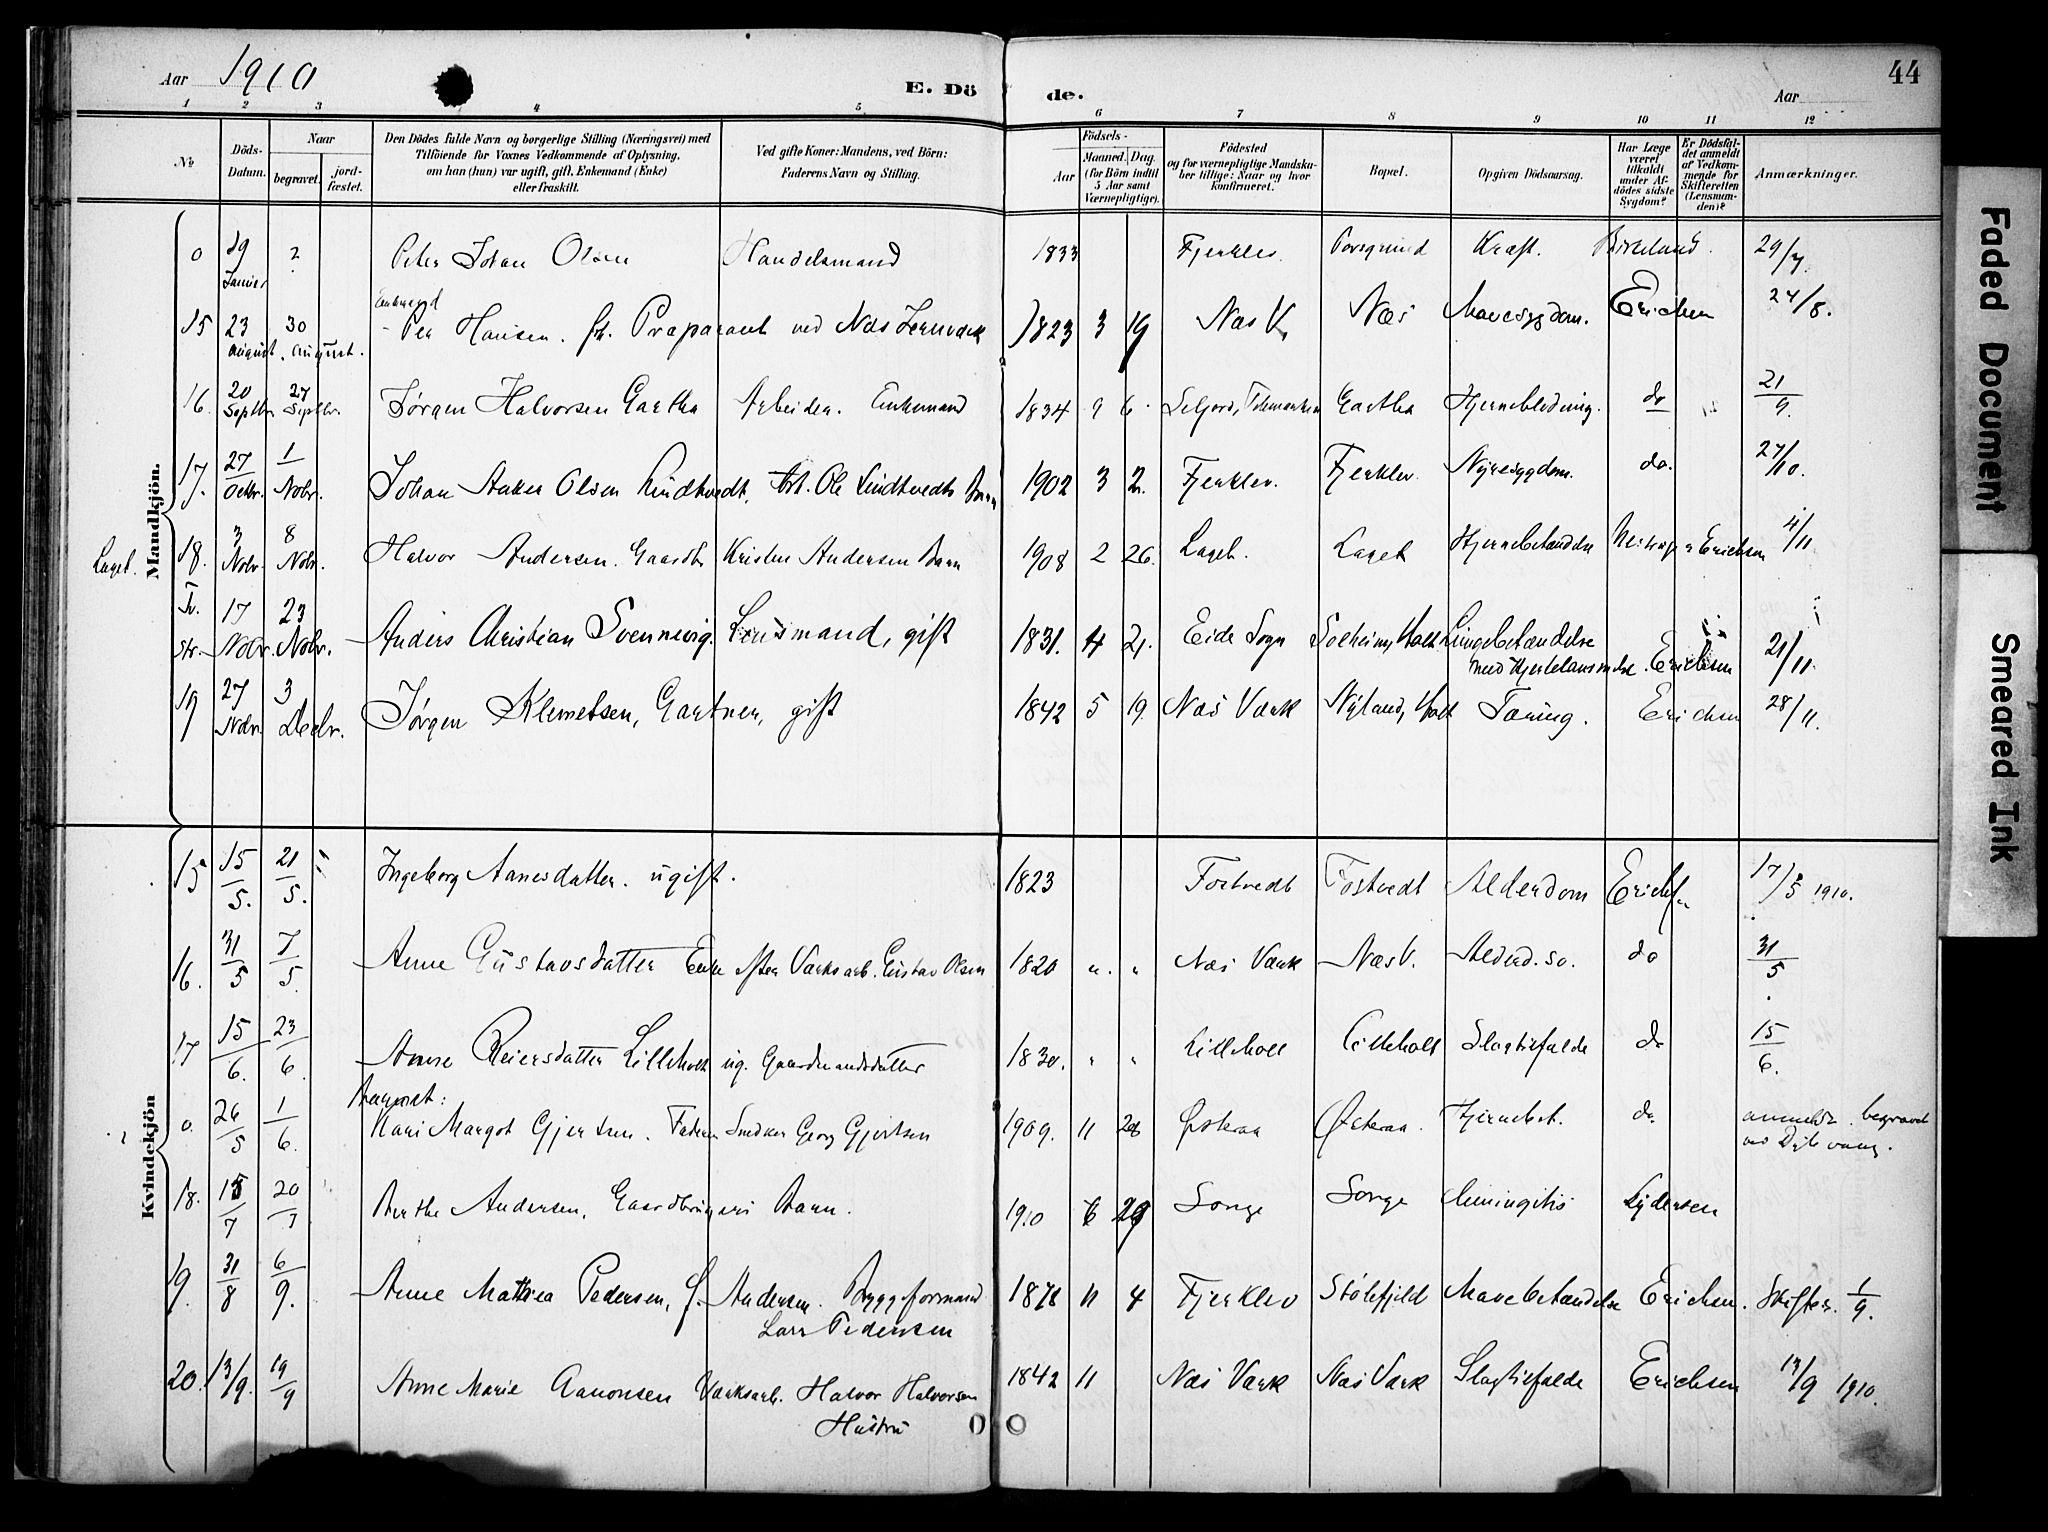 Aar 1910
E. Döde.
Aar
44
1 2 3 4 5 6 7 8 9 10 11 12
No
Döds-Datum.
Naar
begravet.
jord-fæstet.
Den Dödes fulde Navn og borgerlige Stilling (Næringsvei) med
Tilföiende for Voxnes Vedkommende af Oplysning,
om han (hun) var ugift, gift, Enkemand (Enke)
eller fraskilt.
Ved gifte Koner: Mandens, ved Börn:
Faderens Navn og Stilling.
Födsels-
Aar
Maaned. Dag.
(for Börn indtil
5 Aar samt
Værnepligtige).
Födested
og for værnepligtige Mandska-
ber tillige: Naar og hvor
konfirmeret.
Bopæl.
Opgiven Dödsaarsag.
Har Læge
været
tilkaldt
under Af-
dödes sidste
Sygdom?
Er Dödsfal-
det anmeldt
af Vedkom-
mende for
Skifteretten
(Lensman-
den)?
Anmærkninger.
Mandkjön.
0 19 Januar 2 Peter Johan Olsen Handelsmand 1833 Fjerklev. Porsgrund Kræft. Birkeland. 29/7.
Enkemand
15 23 august. 30 august. Per Hansen. fh. Præparant ved Næs Jernværk 1823 3 19 Næs V. Næs Mavesygdom. Erichsen 24/8.
16. 20 Septbr. 27 Septbr. Jørgen Halvorsen Gartha Arbeider. Enkemand 1834 9 6. Seljord, Telemarken Gartha Hjerneblødning. do 21/9.
17. 27 Octbr. 1 Nobr. Johan Aaker Olsen Lindtvedt, Arb. Ole Lindtvedts Barn 1902 3 2. Fjerklev. Fjerklev. Nyresygdom. do. 27/10.
Laget. 18. 3 Nobr. 8 Nobr. Halvor Andersen. Gaardbr Kristen Andersen Barn 1908 2 26. Laget. Laget Hjernebetændelse Erichsen 4/11.
Tv. str. 17 Nobr. 23 Nobr. Anders Christian Svennevig. Lensmand, gift 1831. 4 21. Eide Sogn Solheim, Holt Lungebetændelse
med Hjertelammelse. Erichsen 21/11.
19 27 Nobr. 3 Decbr. Jørgen Klemetsen, Gartner, gift 1842 5 19. Næs Værk Nyland, Holt Tæring. Erichsen 28/11.
Kvindekjön
15 15/5. 21/5. Ingeborg Aanesdatter. ugift. 1823 Fostvedt Fostvedt Alderdom Erichsen 17/5 1910.
16. 31/5 7/5. Anne Gustavsdatter Enke efter Værksarb. Gustav Olsen 1820 " " Næs Værk Næs V. Alderd. sv. do 31/5
17 15/6. 23/6. Anne Reiersdatter Lilleholt ug. Gaardmandsdatter 1830. " " Lilleholt Lilleholt Slagtilfælde do 15/6.
0. 26/5 1/6. Kari Margot Gjertsen. Faderen Snedker Georg Gjertsen 1909. 11 28 Østeraa Østeraa. Hjernebet. do anmeldt. begravet
ved Dybvaag.
18. 15/7 20/7 Berthe Andersen, Gaardbrugers Barn. 1910 6 29 Songe Songe Meningitis Lydersen
19. 31/8 6/9. Anne Mathea Pedersen, f. Andersen. Byggeformand
Lars Pedersen 1878 11 4 Fjerklev Stølefjeld Mavebetændelse Erichsen. Skifter. 1/9.
20. 13/9. 19/9 Anne Marie Aanonsen Værksarb. Halvor Halvorsen
Hustru 1842 11 Næs Værk Næs Værk Slagtilfælde Erichsen 13/9 1910.
Faded Document
Smeared Ink